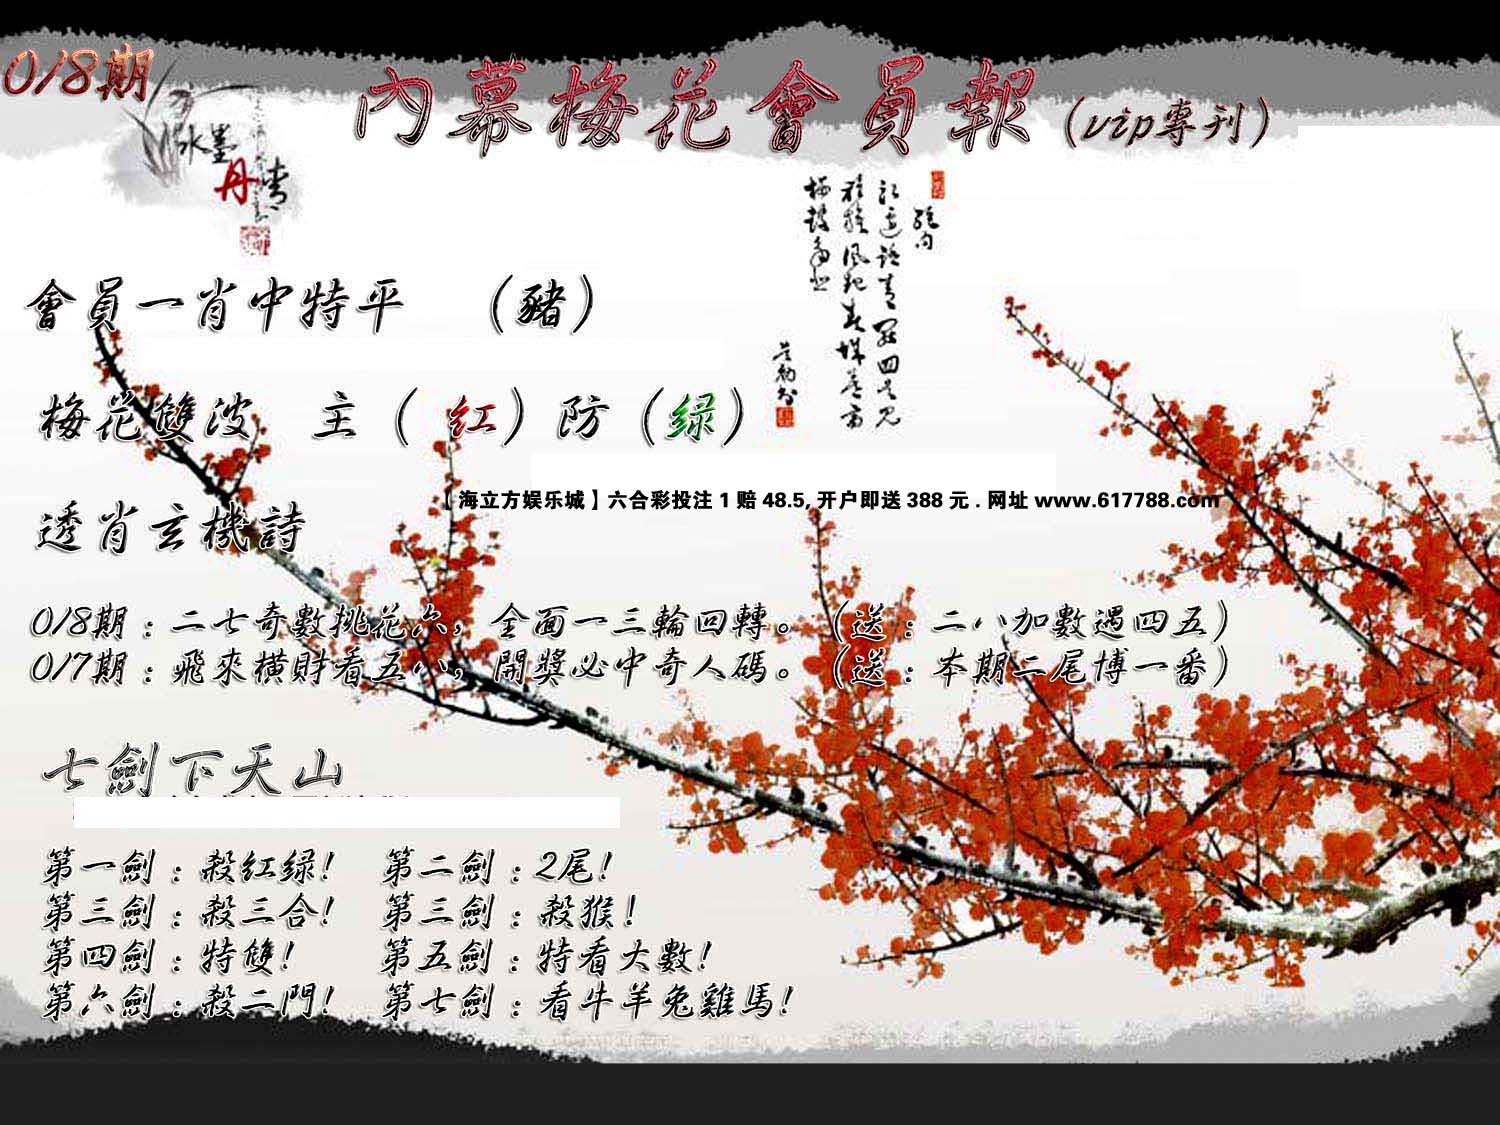 018期
內幕梅花會員報(vip專刊)
水墨
丹青
絕句
會員一肖中特平 (豬)
梅花雙波 主(紅)防(绿)
【海立方娱乐城】六合彩投注1赔48.5,开户即送388元.网址www.617788.com
透肖玄機詩
018期：二七奇數挑花六，全面一三輪回轉。(送：二八加數遇四五)
017期：飛來橫財看五八，開獎必中奇人碼。(送：本期二尾博一番)
七劍下天山
第一劍：殺紅绿! 第二劍：2尾!
第三劍：殺三合! 第三劍：殺猴!
第四劍：特雙! 第五劍：特看大數!
第六劍：殺二門! 第七劍：看牛羊兔雞馬!